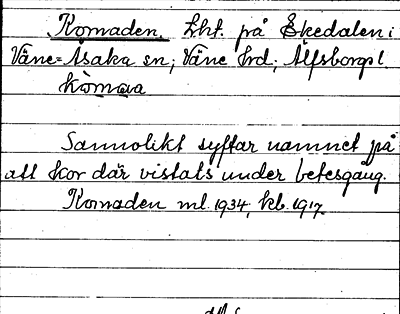 Komaden. Lht. på Ekedalen i
Väne-Åsaka sn; Väne hrd; Älfsborgs l.
kòmaa
Sannolikt syftar namnet på
att kor där vistats under betesgång.
Komaden ml. 1934, kb. 1917.